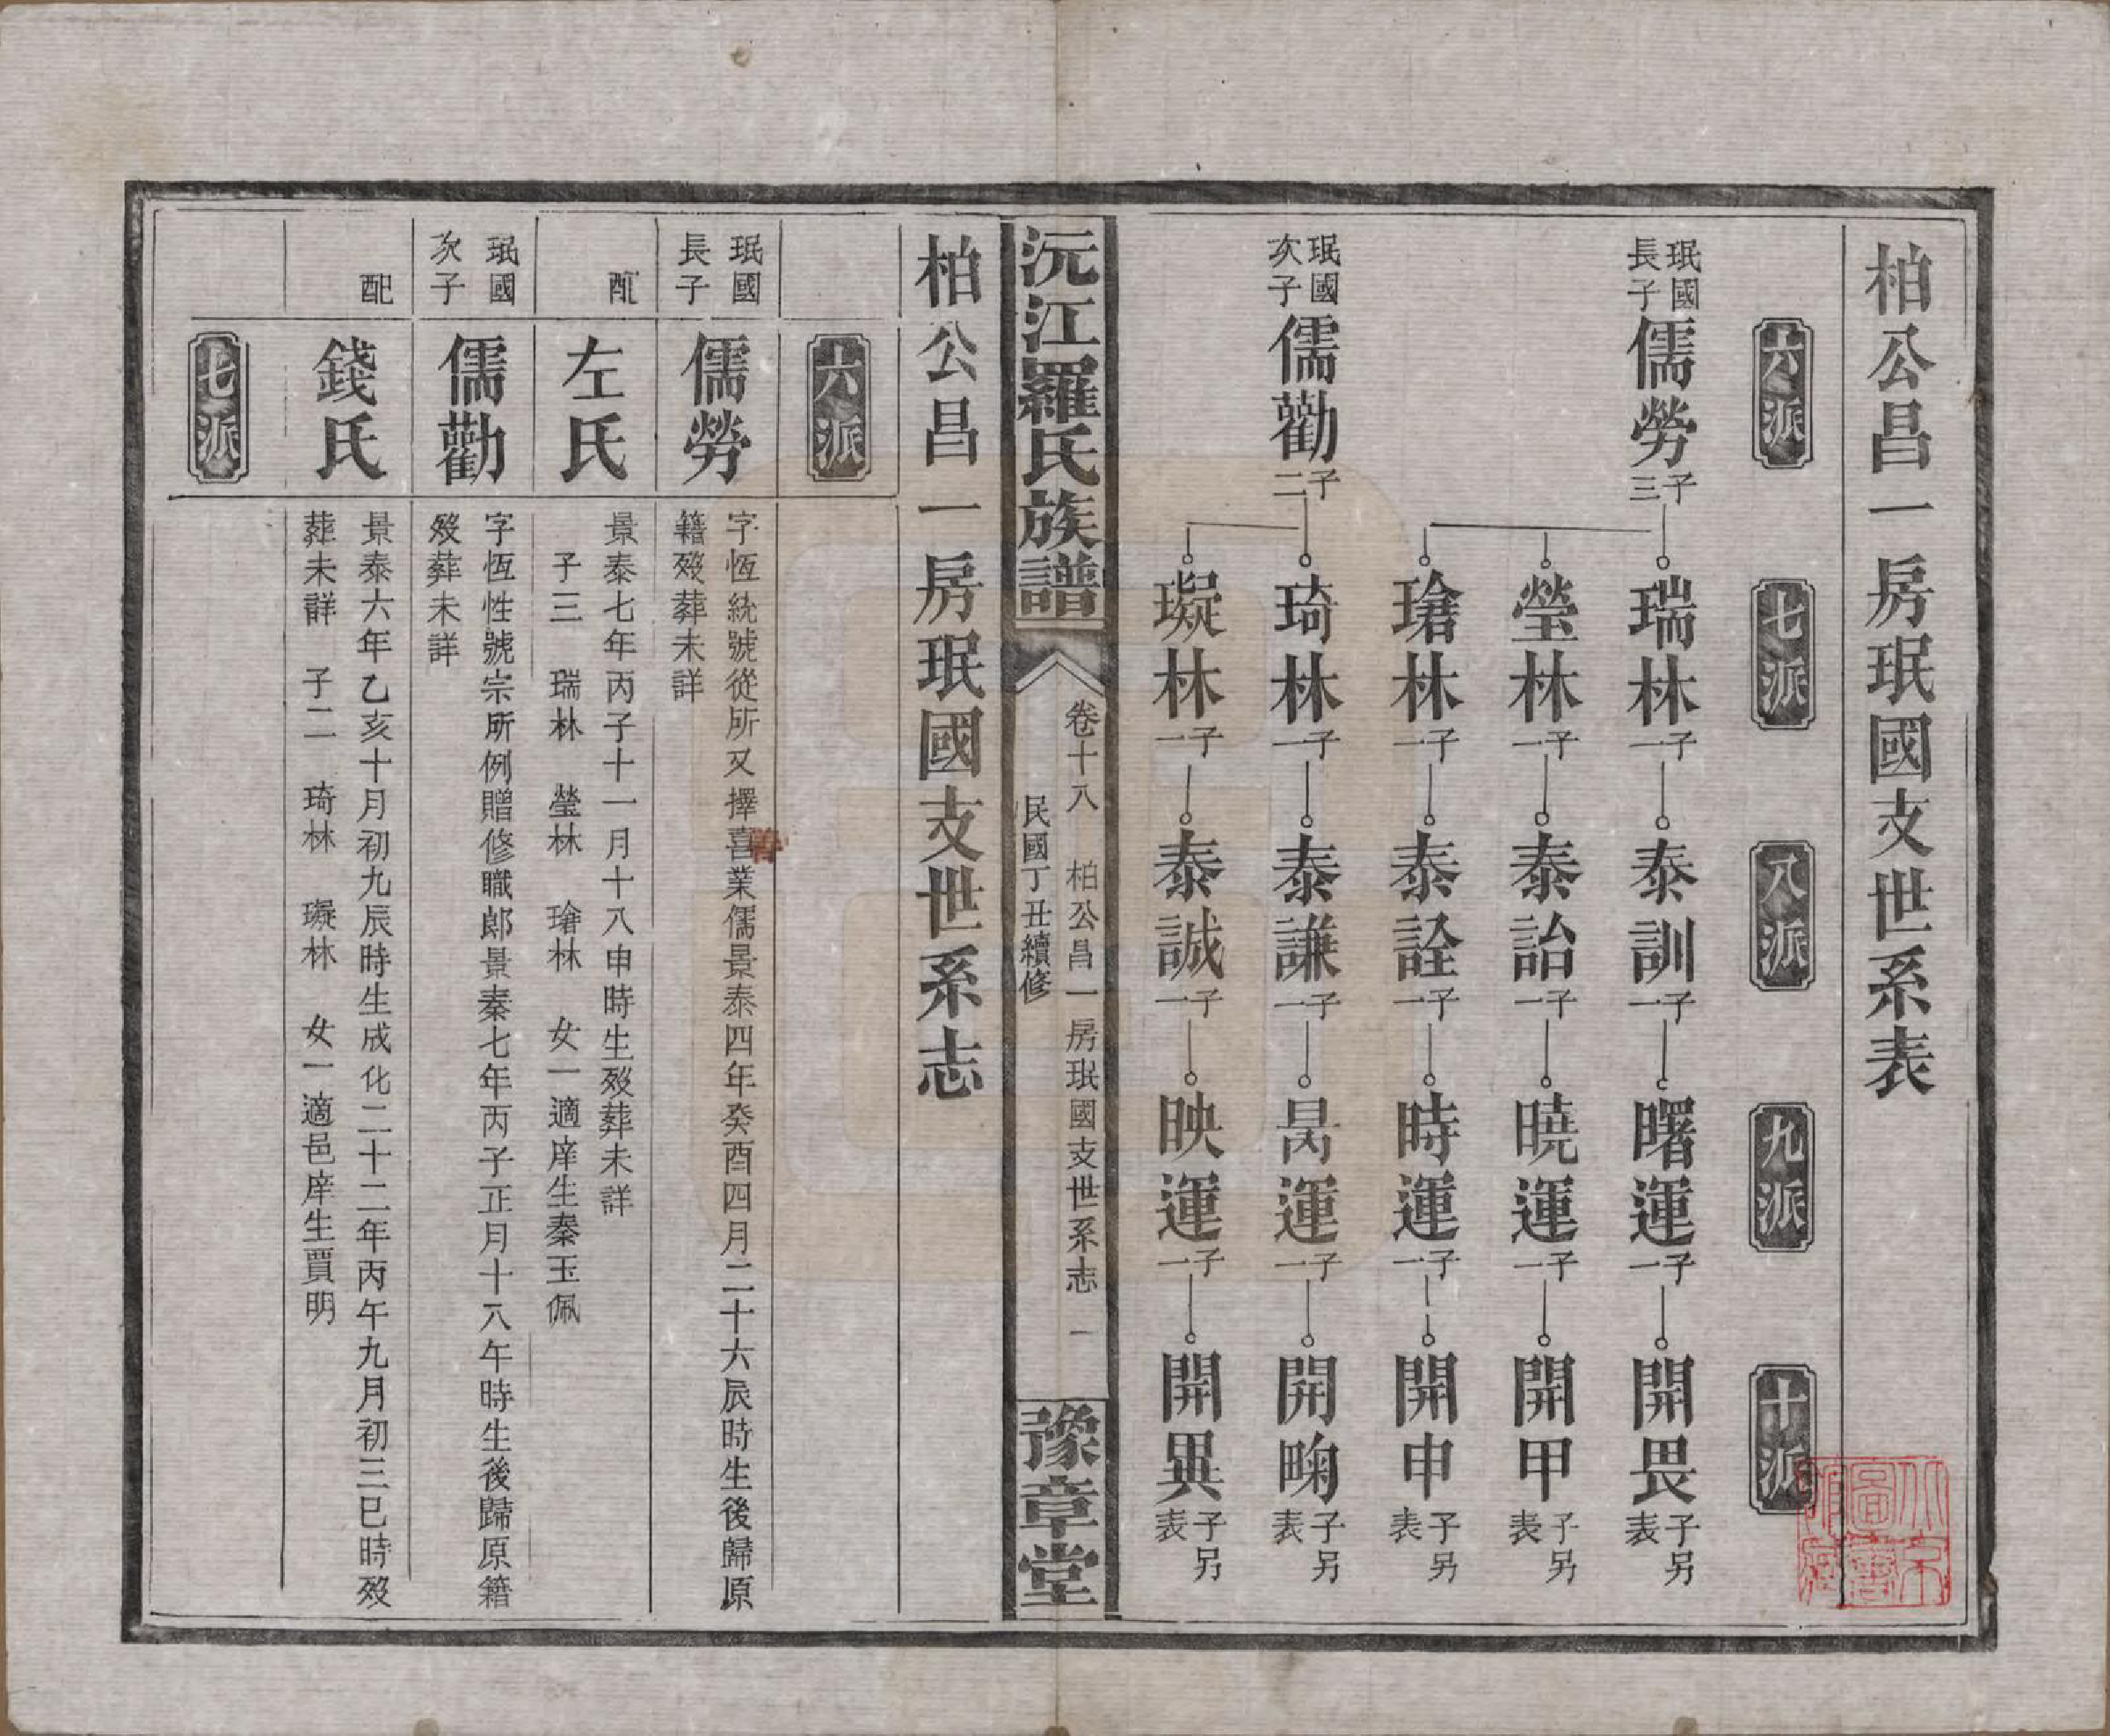 柏公昌一房珉國支世系表
六派
七派
八派
九派
十派
珉國
長子
儒勞
子三
瑞林
子一
泰訓
子一
曙運
子一
開畏
子另
表
瑩林
子一
泰詒
子一
曉運
子一
開甲
子另
表
瑲林
子一
泰詮
子一
時運
子一
開申
子另
表
珉國
次子
儒勸
子二
琦林
子一
泰謙
子一
昺運
子一
開畮
子另
表
璇林
子一
泰誠
子一
映運
子一
開異
子另
表
沅江羅氏族譜
卷十八 柏公昌一房珉國支世系志 一
民國丁丑續修
豫章堂
柏公昌一房珉國支世系志
六派
珉國
長子
儒勞
字恆統號從所又擇喜業儒景泰四年癸酉四月二十六辰時生後歸原
籍歿葬未詳
配
左氏
景泰七年丙子十一月十八申時生歿葬未詳
子三 瑞林 瑩林 瑲林 女一適庠生秦玉佩
珉國
次子
儒勸
字恆性號宗所例贈修職郎景泰七年丙子正月十八午時生後歸原籍
歿葬未詳
配
錢氏
景泰六年乙亥十月初九辰時生成化二十二年丙午九月初三巳時歿
葬未詳 子二 琦林 璇林 女一適邑庠生賈明
七派